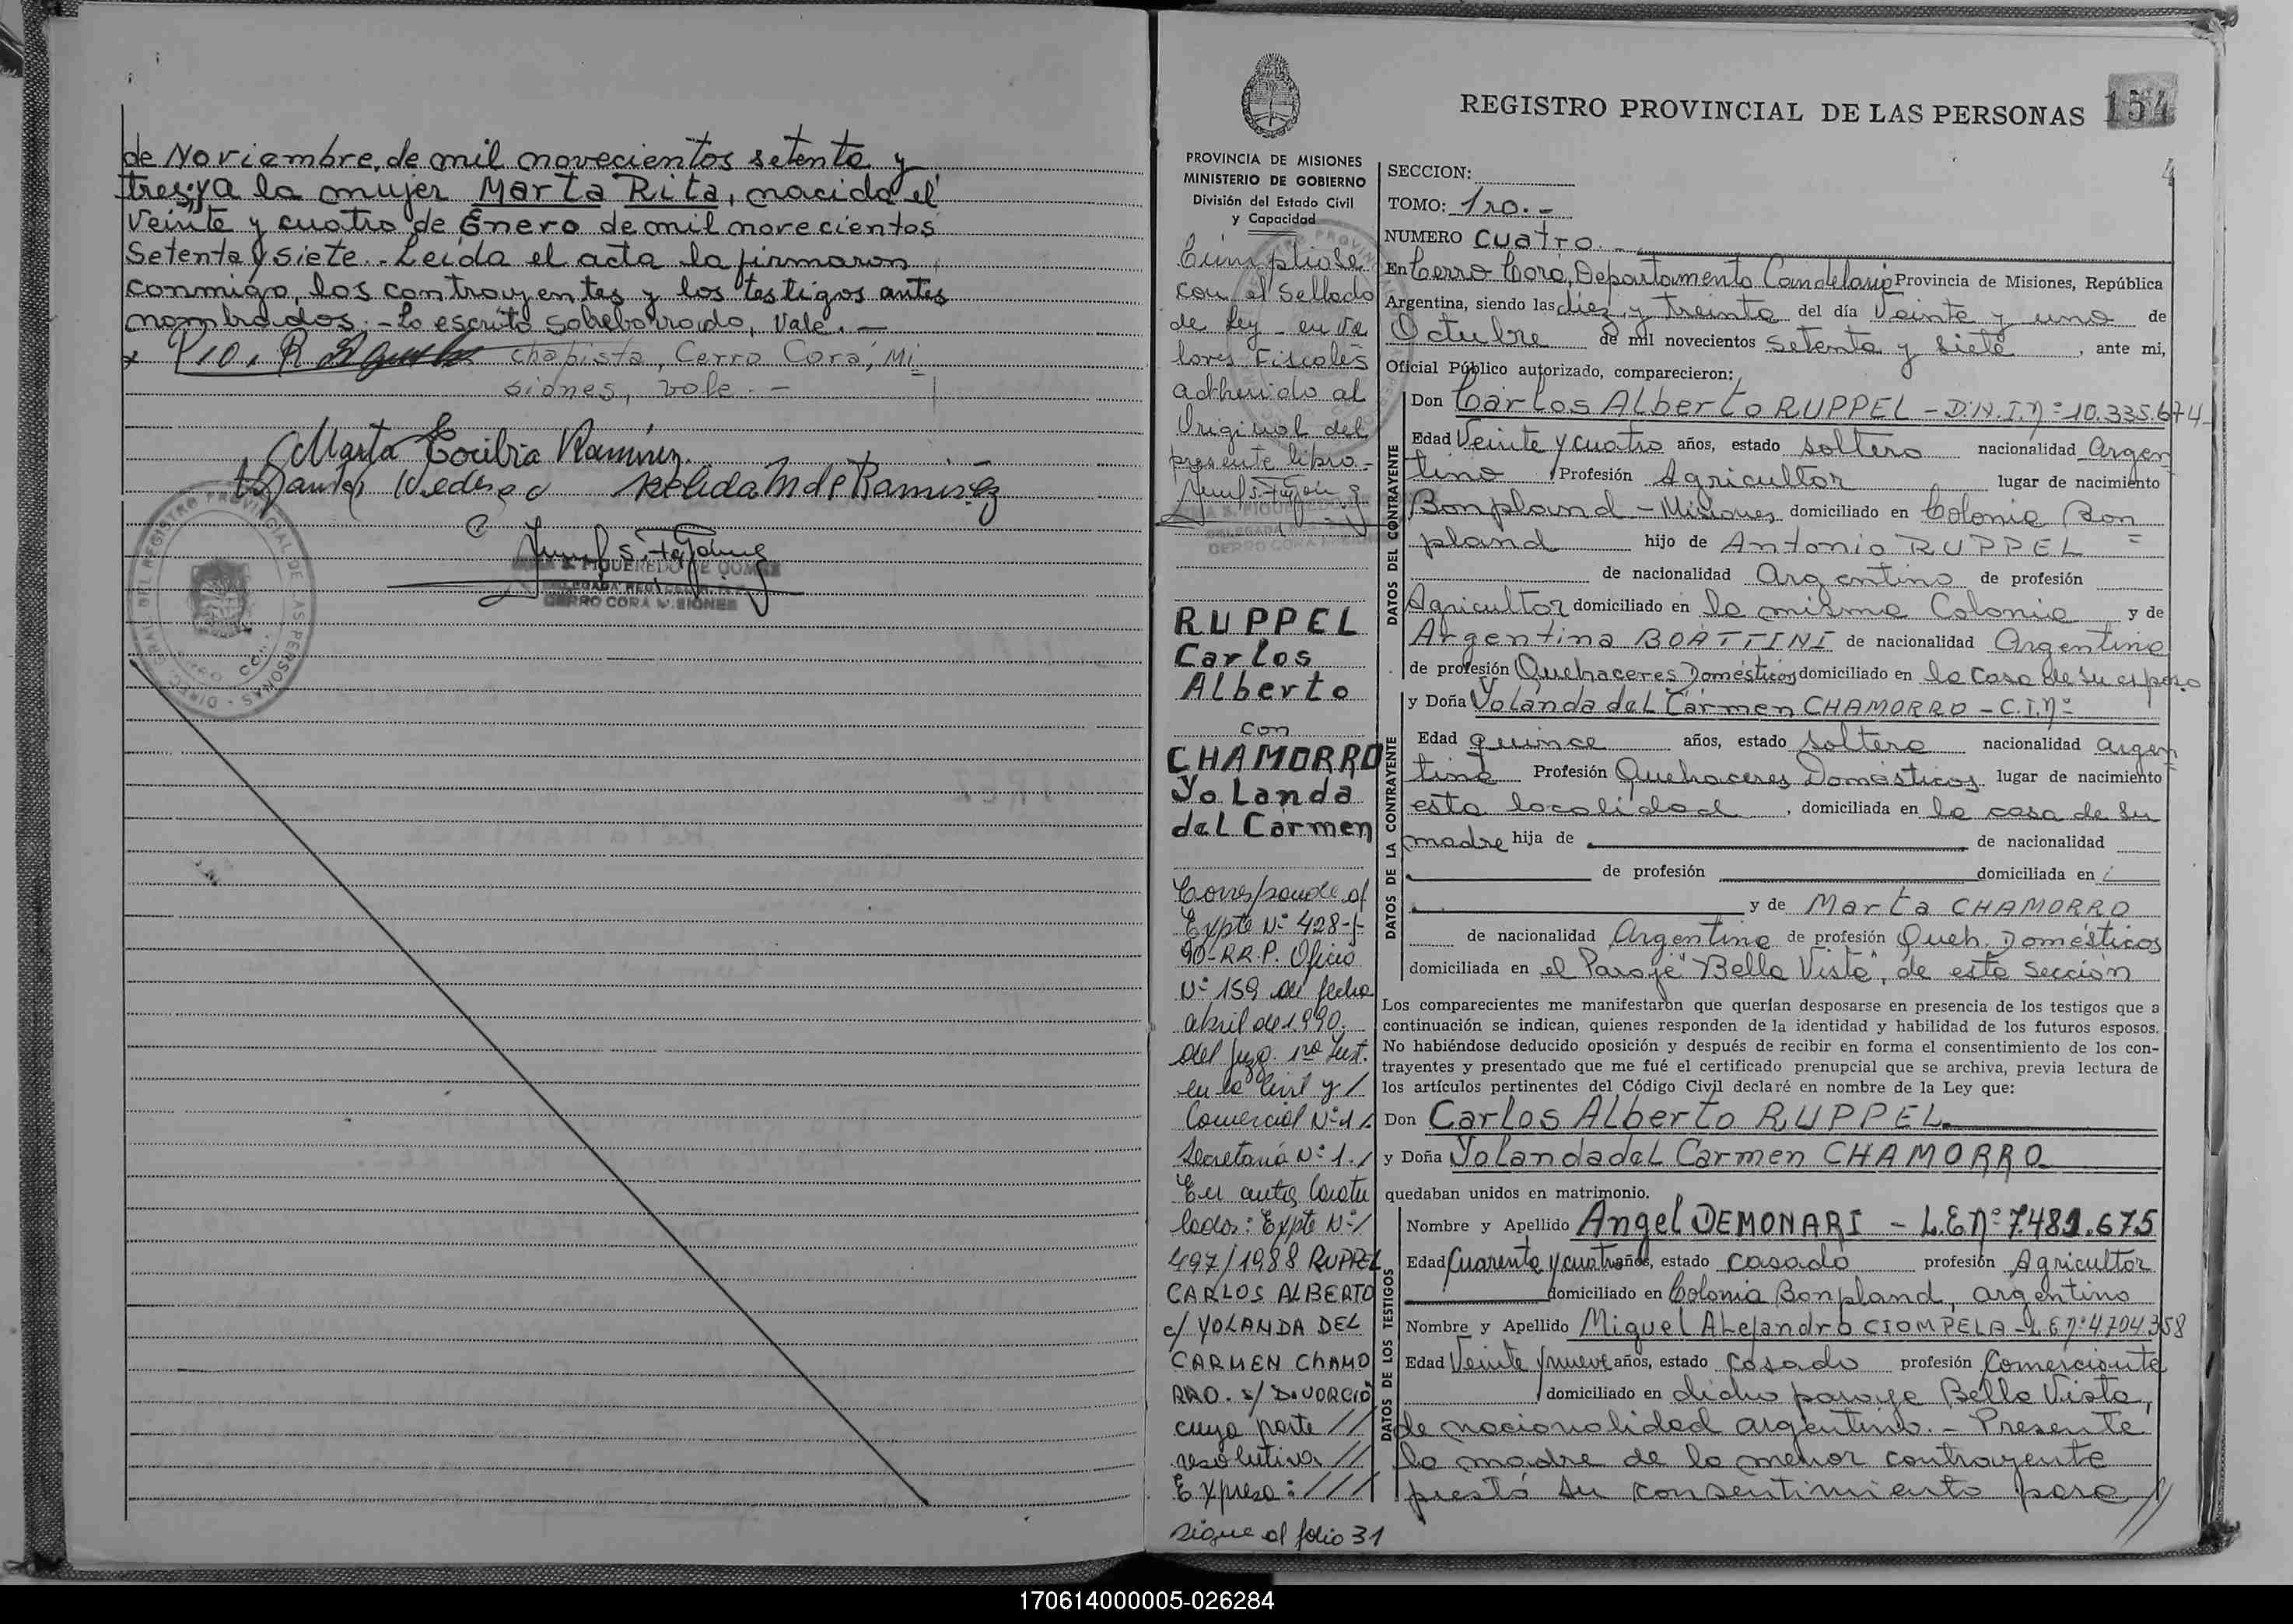 de Noviembre, de mil novecientos setenta y
tres; y a la mujer Marta Rita, nacida el
veinte y cuatro de Enero de mil novecientos
setenta y siete.- Leída el acta la firmaron
conmigo, los contrayentes y los testigos antes
nombrados.- Lo escrito sobreborrado, Vale.-
chapista, Cerro Corá, Mi
siones, vale.-
Marta Ramírez
de Ramírez
CERRO CORA MISIONES
REGISTRO PROVINCIAL DE LAS PERSONAS 154
4
PROVINCIA DE MISIONES
MINISTERIO DE GOBIERNO
División del Estado Civil
y Capacidad
Cúmpliose
con el Sellado
de Ley en va
lores Fiscales
adherido al
Original del
presente libro.-
RUPPEL
Carlos
Alberto
con
CHAMORRO
Yolanda
del Carmen
Corresponde al
Expte Nº 428-/-
90-RR.P. Oficio
Nº 159 de fecha
abril de 1.990.
del Juzg. 1ra Inst.
en lo Civil y /
Comercial Nº 1 /
Secretaría Nº 1. /
En autos Caratu
lados: Expte Nº /
497/1988 RUPPEL
CARLOS ALBERTO
c/ YOLANDA DEL
CARMEN CHAMO
RRO. s/ DIVORCIO
cuya parte //
resolutiva //
Expresa: ///
sigue al folio 31
SECCION:
TOMO: 1ro.-
NUMERO Cuatro.-
En Cerro Corá, Departamento Candelaria Provincia de Misiones, República
Argentina, siendo las diez y treinta del día Veinte y uno de
Octubre de mil novecientos setenta y siete, ante mi,
Oficial Público autorizado, comparecieron:
DATOS DEL CONTRAYENTE
Don Carlos Alberto RUPPEL - D.N.I.Nº 10.335.674
Edad Veinte y cuatro años, estado soltero nacionalidad Argen
tino Profesión Agricultor lugar de nacimiento
Bonpland - Misiones domiciliado en Colonia Bon
pland hijo de Antonio RUPPEL
de nacionalidad Argentino de profesión
Agricultor domiciliado en la misma Colonia y de
Argentina BOATTINI de nacionalidad Argentina
de profesión Quehaceres Domésticos domiciliado en la Casa de su esposo
DATOS DE LA CONTRAYENTE
y Doña Yolanda del Carmen CHAMORRO - C.I.Nº
Edad quince años, estado soltera nacionalidad argen
tina Profesión Quehaceres Domésticos lugar de nacimiento
esta localidad, domiciliada en la casa de su
madre hija de de nacionalidad
de profesión domiciliada en
y de Marta CHAMORRO
de nacionalidad Argentina de profesión Queh. Domésticos
domiciliada en el Paraje "Bella Vista", de esta sección
Los comparecientes me manifestaron que querían desposarse en presencia de los testigos que a
continuación se indican, quienes responden de la identidad y habilidad de los futuros esposos.
No habiéndose deducido oposición y después de recibir en forma el consentimiento de los con-
trayentes y presentado que me fué el certificado prenupcial que se archiva, previa lectura de
los artículos pertinentes del Código Civil declaré en nombre de la Ley que:
Don Carlos Alberto RUPPEL
y Doña Yolanda del Carmen CHAMORRO
quedaban unidos en matrimonio.
DATOS DE LOS TESTIGOS
Nombre y Apellido Angel DEMONARI - L.E.Nº 7.481.675
Edad Cuarenta y cuatro años, estado casado profesión Agricultor
domiciliado en Colonia Bonpland, argentino
Nombre y Apellido Miguel Alejandro CIOMPELA - L.E.Nº 4704.358
Edad Veinte y nueve años, estado casado profesión Comerciante
domiciliado en dicho paraje Bella Vista,
de nacionalidad argentino.- Presente
la madre de la menor contrayente
prestó su consentimiento para //
170614000005-026284